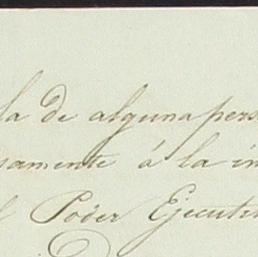 la de alguna pers
samente á la in
l Poder Ejecuti